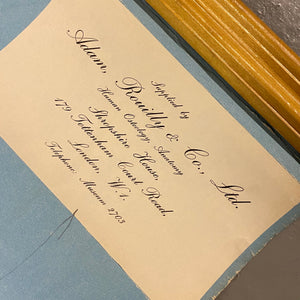 Supplied by
Adam, Rouilly & Co., Ltd.
Human Osteology, Anatomy
Shropshire House,
179 Tottenham Court Road,
London, W.1.
Telephone, Museum 2703